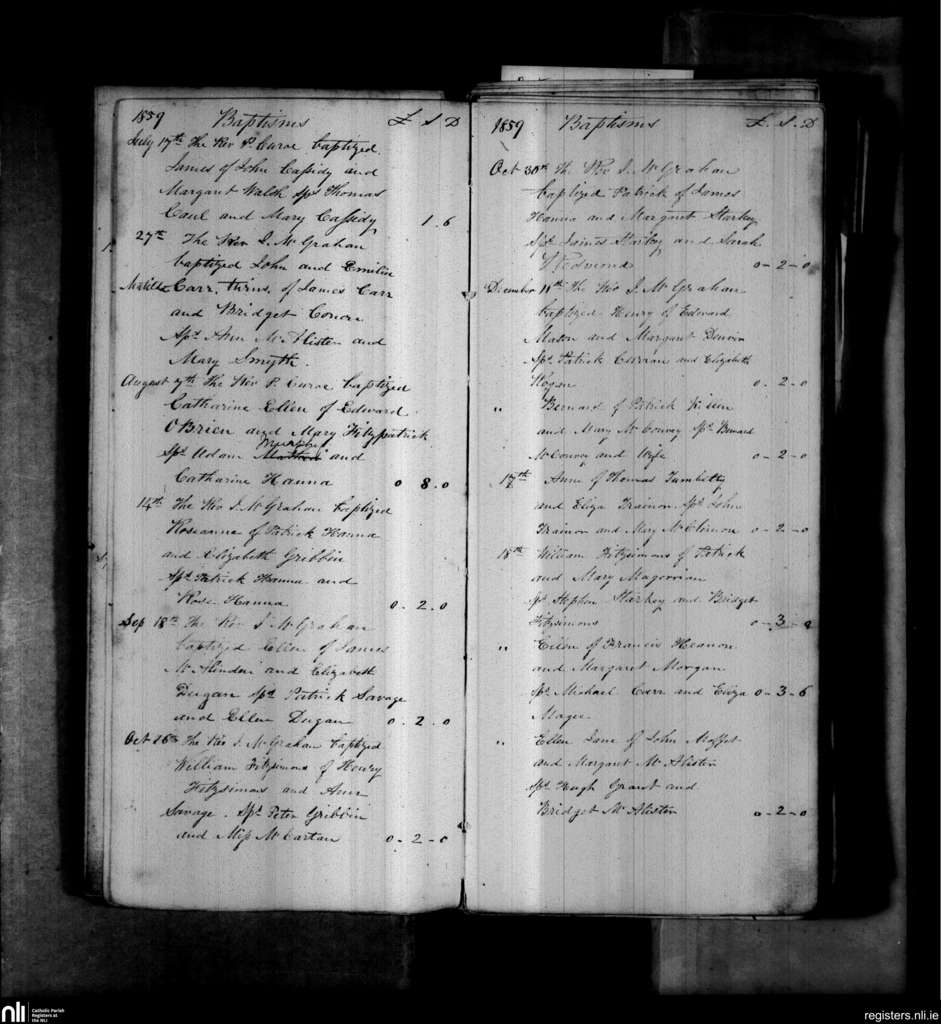 1859 Baptisms £ S D
July 17th The Rev P. Curoe baptized
James of John Cassidy and
Margaret Walsh Sps Thomas
Caul and Mary Cassidy 1.6
27th The Rev J. McGrahan
baptized John and Emiline
Carr, twins, of James Carr
and Bridget Conon
Sps Ann McAlister and
Mary Smyth.
August 7th The Rev P. Curoe baptized
Catharine Ellen of Edward
O'Brien and Mary Fitzpatrick
Murphy
Sps Adam and
Catharine Hanna 0 8.0
14th The Rev J. McGrahan baptized
Roseanne of Patrick Hanna
and Elizabeth Gribbin
Sps Patrick Hanna and
Rose Hanna 0.2.0
Sep 18th The Rev J. McGrahan
baptized Ellen of James
and Elizabeth
Dugan Sps Patrick Savage
and Ellen Dugan 0.2.0
Oct 26th The Rev J. McGrahan baptized
William Fitzsimons of Henry
Fitzsimons and Ann
Savage. Sps Peter Gribbin
and Miss McCartan 0-2-0
1859 Baptisms £.S.D
Oct 30th The Rev J. McGrahan
baptized Patrick of James
Hanna and Margaret Starkey
Sps James Starkey and Sarah
Redmond 0-2-0
December 11th The Rev J. McGrahan
baptized Henry of Edward
Mason and Margaret
Sps Patrick Curran and Elizabeth
Hogan 0.2-0
" Bernard of Patrick Killen
and Mary McConvey Sps Bernard
McConvey and Wife 0-2-0
17th Anne of Thomas
and Eliza Trainon. Sps John
Trainon and Mary McClimon 0-2-0
18th William Fitzsimons of Patrick
and Mary Magorrian
Sps Stephen Starkey and Bridget
Fitzsimons 0-3-0
" Ellen of Francis Heanon
and Margaret Morgan
Sps Michael Carr and Eliza 0-3-6
Magee
" Ellen Jane of John Moffet
and Margaret McAlister
Sps Hugh Grant and
Bridget McAlister 0-2-0
nli Catholic Parish
Registers at
the NLI
registers.nli.ie